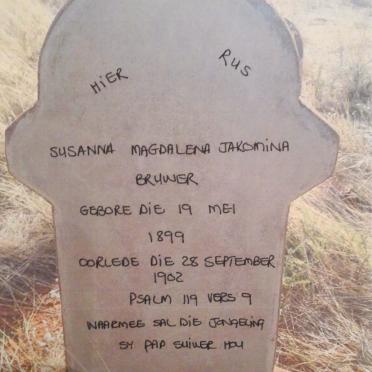 HIER RUS
SUSANNA MAGDALENA JAKOMINA
BRUWER
GEBORE DIE 19 MEI
1899
OORLEDE DIE 28 SEPTEMBER
1902
PSALM 119 VERS 9
WAARMEE SAL DIE JONGELING
SY PAD SUIWER HOU